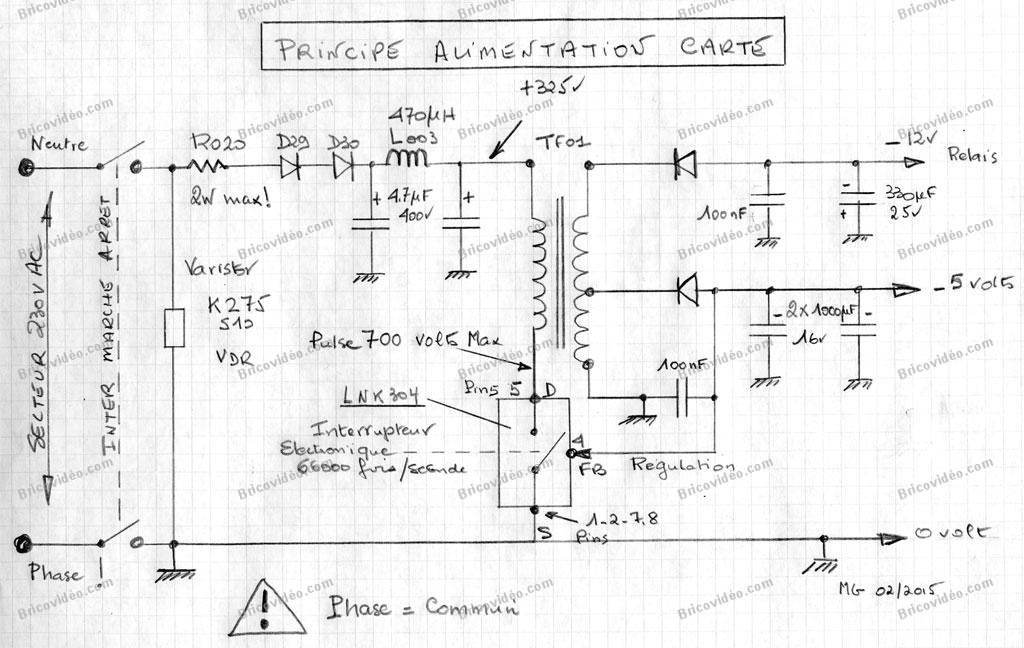 PRINCIPE ALIMENTATION CARTE
+325V
Neutre
R020
D29
D30
470µH
L003
TF01
-12V
Relais
2W max!
+
4.7µF
400V
+
100nF
-
+
330µF
25V
SECTEUR 230V AC
INTER MARCHE ARRET
Varistor
K275
S10
VDR
-5 volts
-
2x1000µF
-
16v
Pulse 700 volts Max
100nF
Pins 5
D
LNK304
Interrupteur
Electronique
66000 fois/seconde
4
FB
Régulation
1-2-7.8
Pins
S
0 volt
Phase
MG 02/2015
!
Phase = Commun
Bricovidéo.com